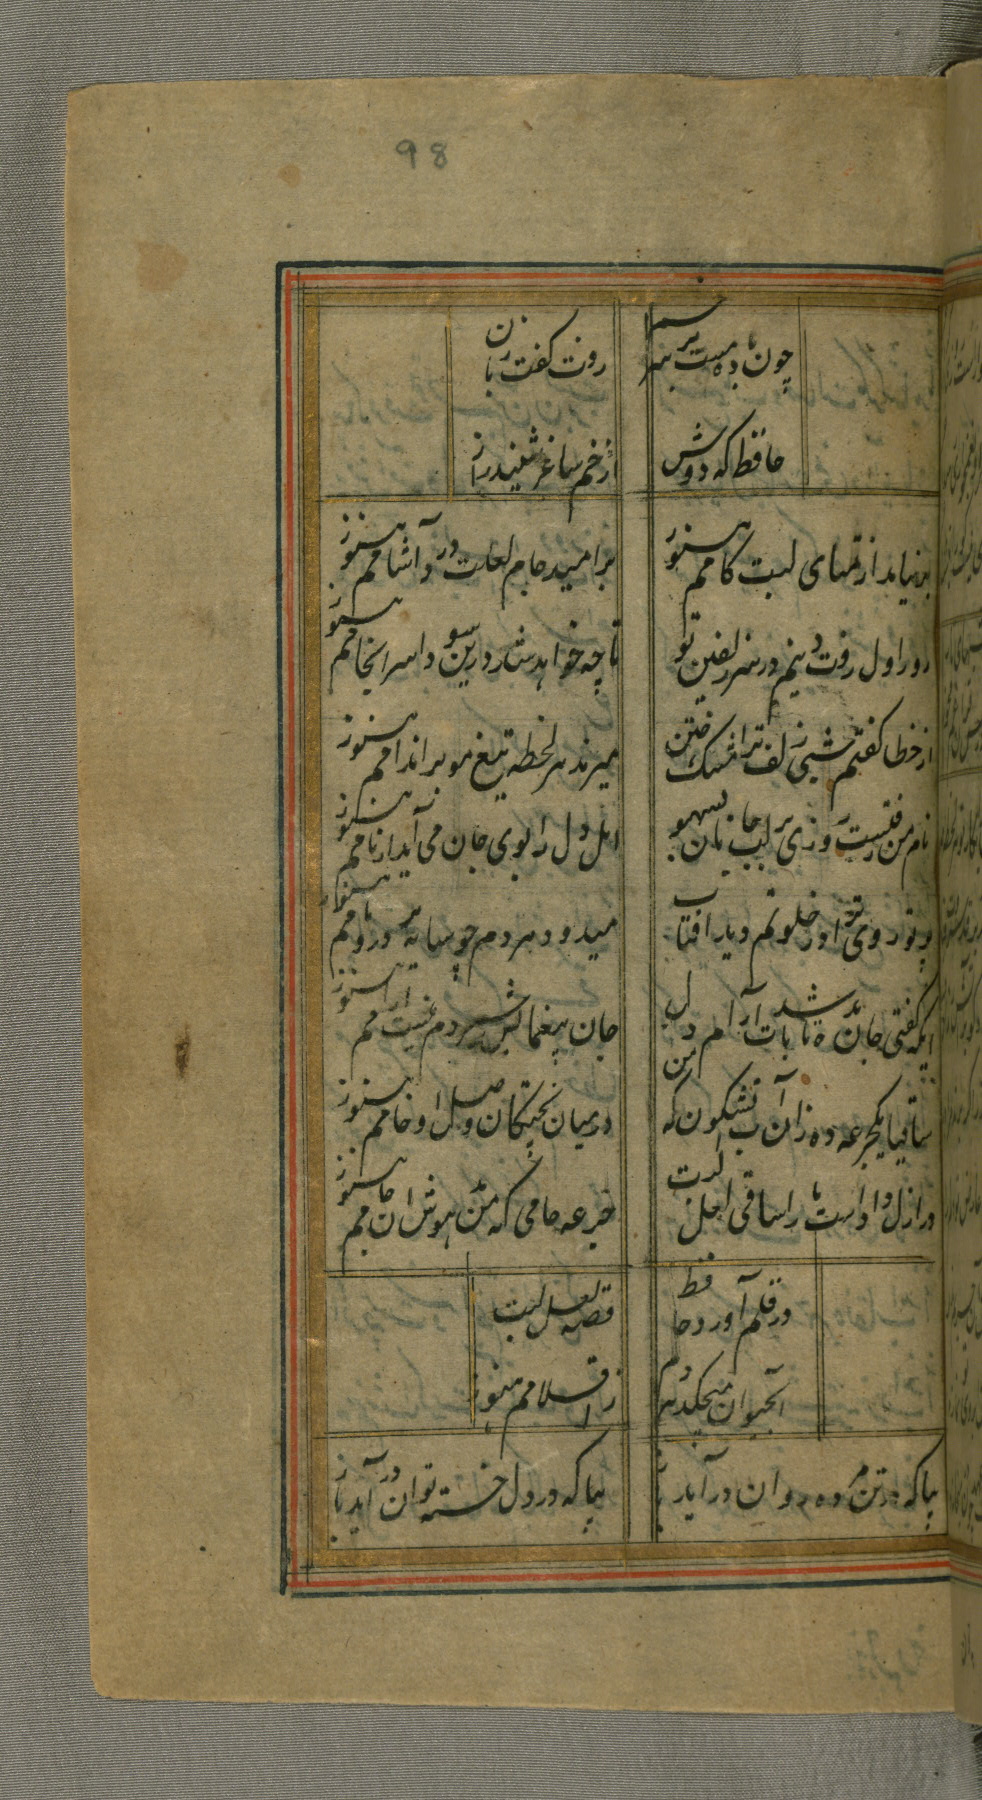 98
چون باده مست بر سر خم
رفت کف زنان
حافظ که دوش
از خم ساغر شنید راز
برنیامد از تمنای لبت کامم هنوز
بر امید جام لعلت دردآشامم هنوز
روز اول رفت دینم در سر زلفین تو
تا چه خواهد شد درین سودا سرانجامم هنوز
از خطا گفتم شبی زلف ترا مشک ختن
میزند هر لحظه تیغ مو بر اندامم هنوز
نام من رفتست روزی بر لب جانان بسهو
اهل دل را بوی جان می آید از نامم هنوز
پرتو روی ترا در خلوتم دید آفتاب
میدود هر دم چو سایه بر در و بامم هنوز
ایکه گفتی جان بده تا باشدت آرام دل
جان بیغمایش سپردم نیست آرامم هنوز
ساقیا یکجرعه ده زان آب آتشگون که من
در میان پختگان وصل او خامم هنوز
در ازل دادست ما را ساقی لعل لبت
جرعه جامی که من مدهوش آن جامم هنوز
در قلم آورد حافظ
قصه لعل لبت
آب حیوان میچکد هر دم
ز اقلامم هنوز
بیا که در تن مرده روان درآید باز
بیا که در دل خسته توان درآید باز